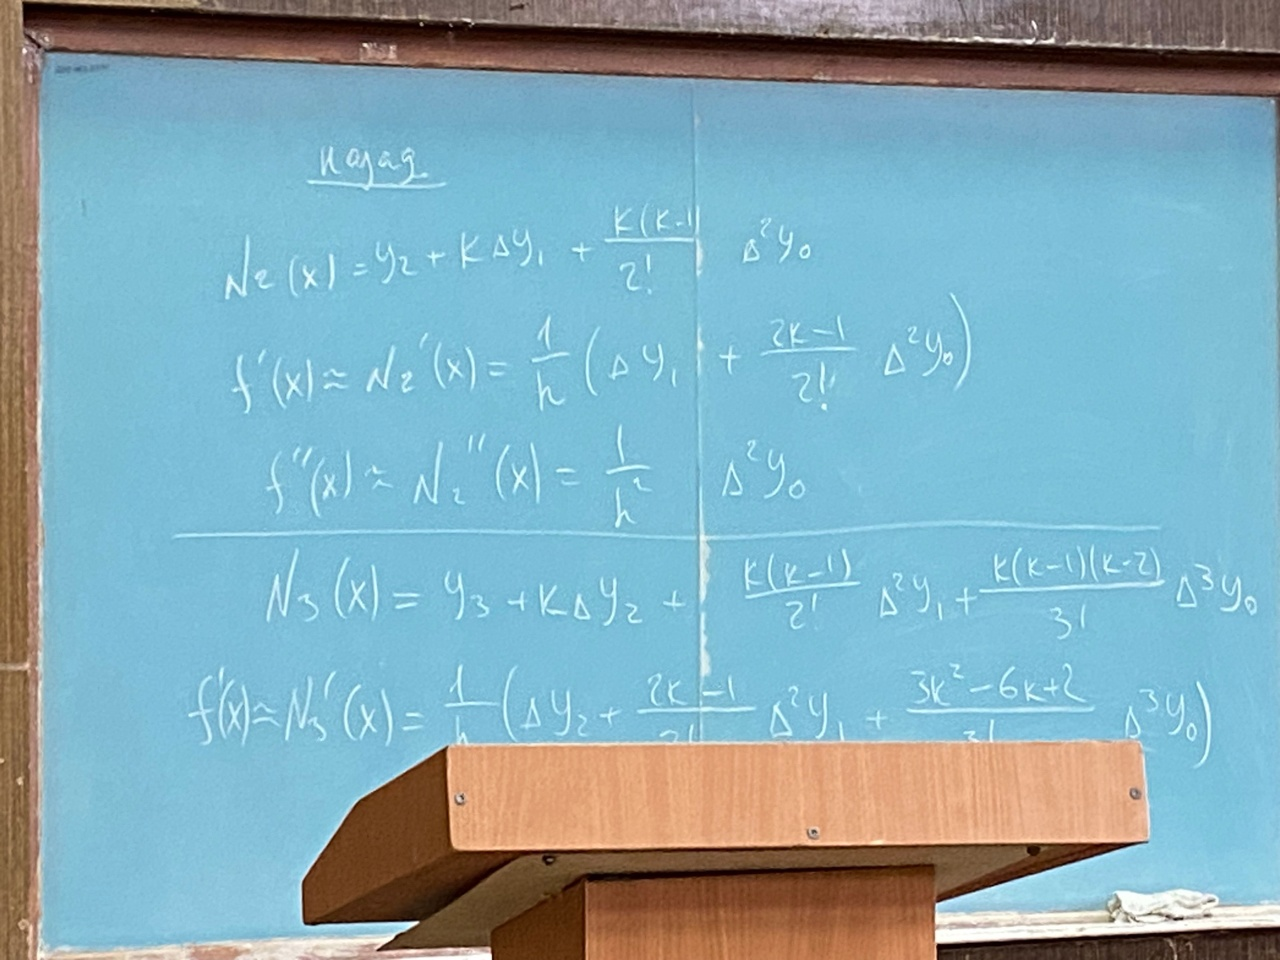 назад
N₂(x) = y₂ + kΔy₁ + k(k-1)/2! Δ²y₀
f'(x) ≈ N₂'(x) = 1/h (Δy₁ + (2k-1)/2! Δ²y₀)
f''(x) ≈ N₂''(x) = 1/h² Δ²y₀
N₃(x) = y₃ + kΔy₂ + k(k-1)/2! Δ²y₁ + k(k-1)(k-2)/3! Δ³y₀
f'(x) ≈ N₃'(x) = 1/h (Δy₂ + (2k-1)/2! Δ²y₁ + (3k²-6k+2)/3! Δ³y₀)